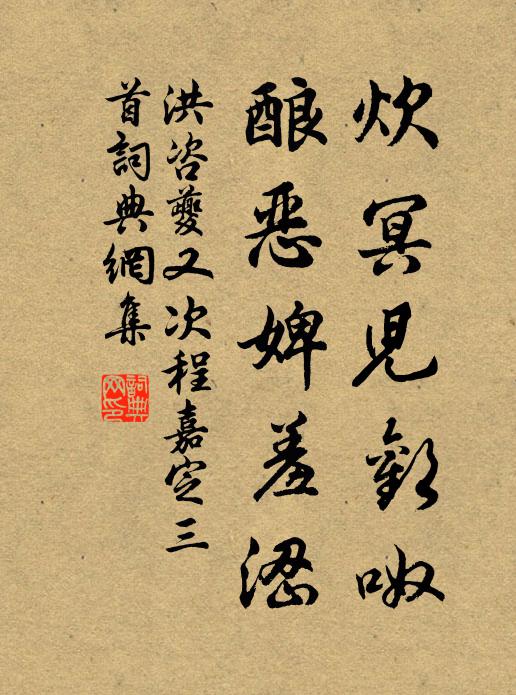 炊冥児歡呶
酿恶婢羞涩
洪咨夔又次程嘉定三
首詞典網集
詞典
网印